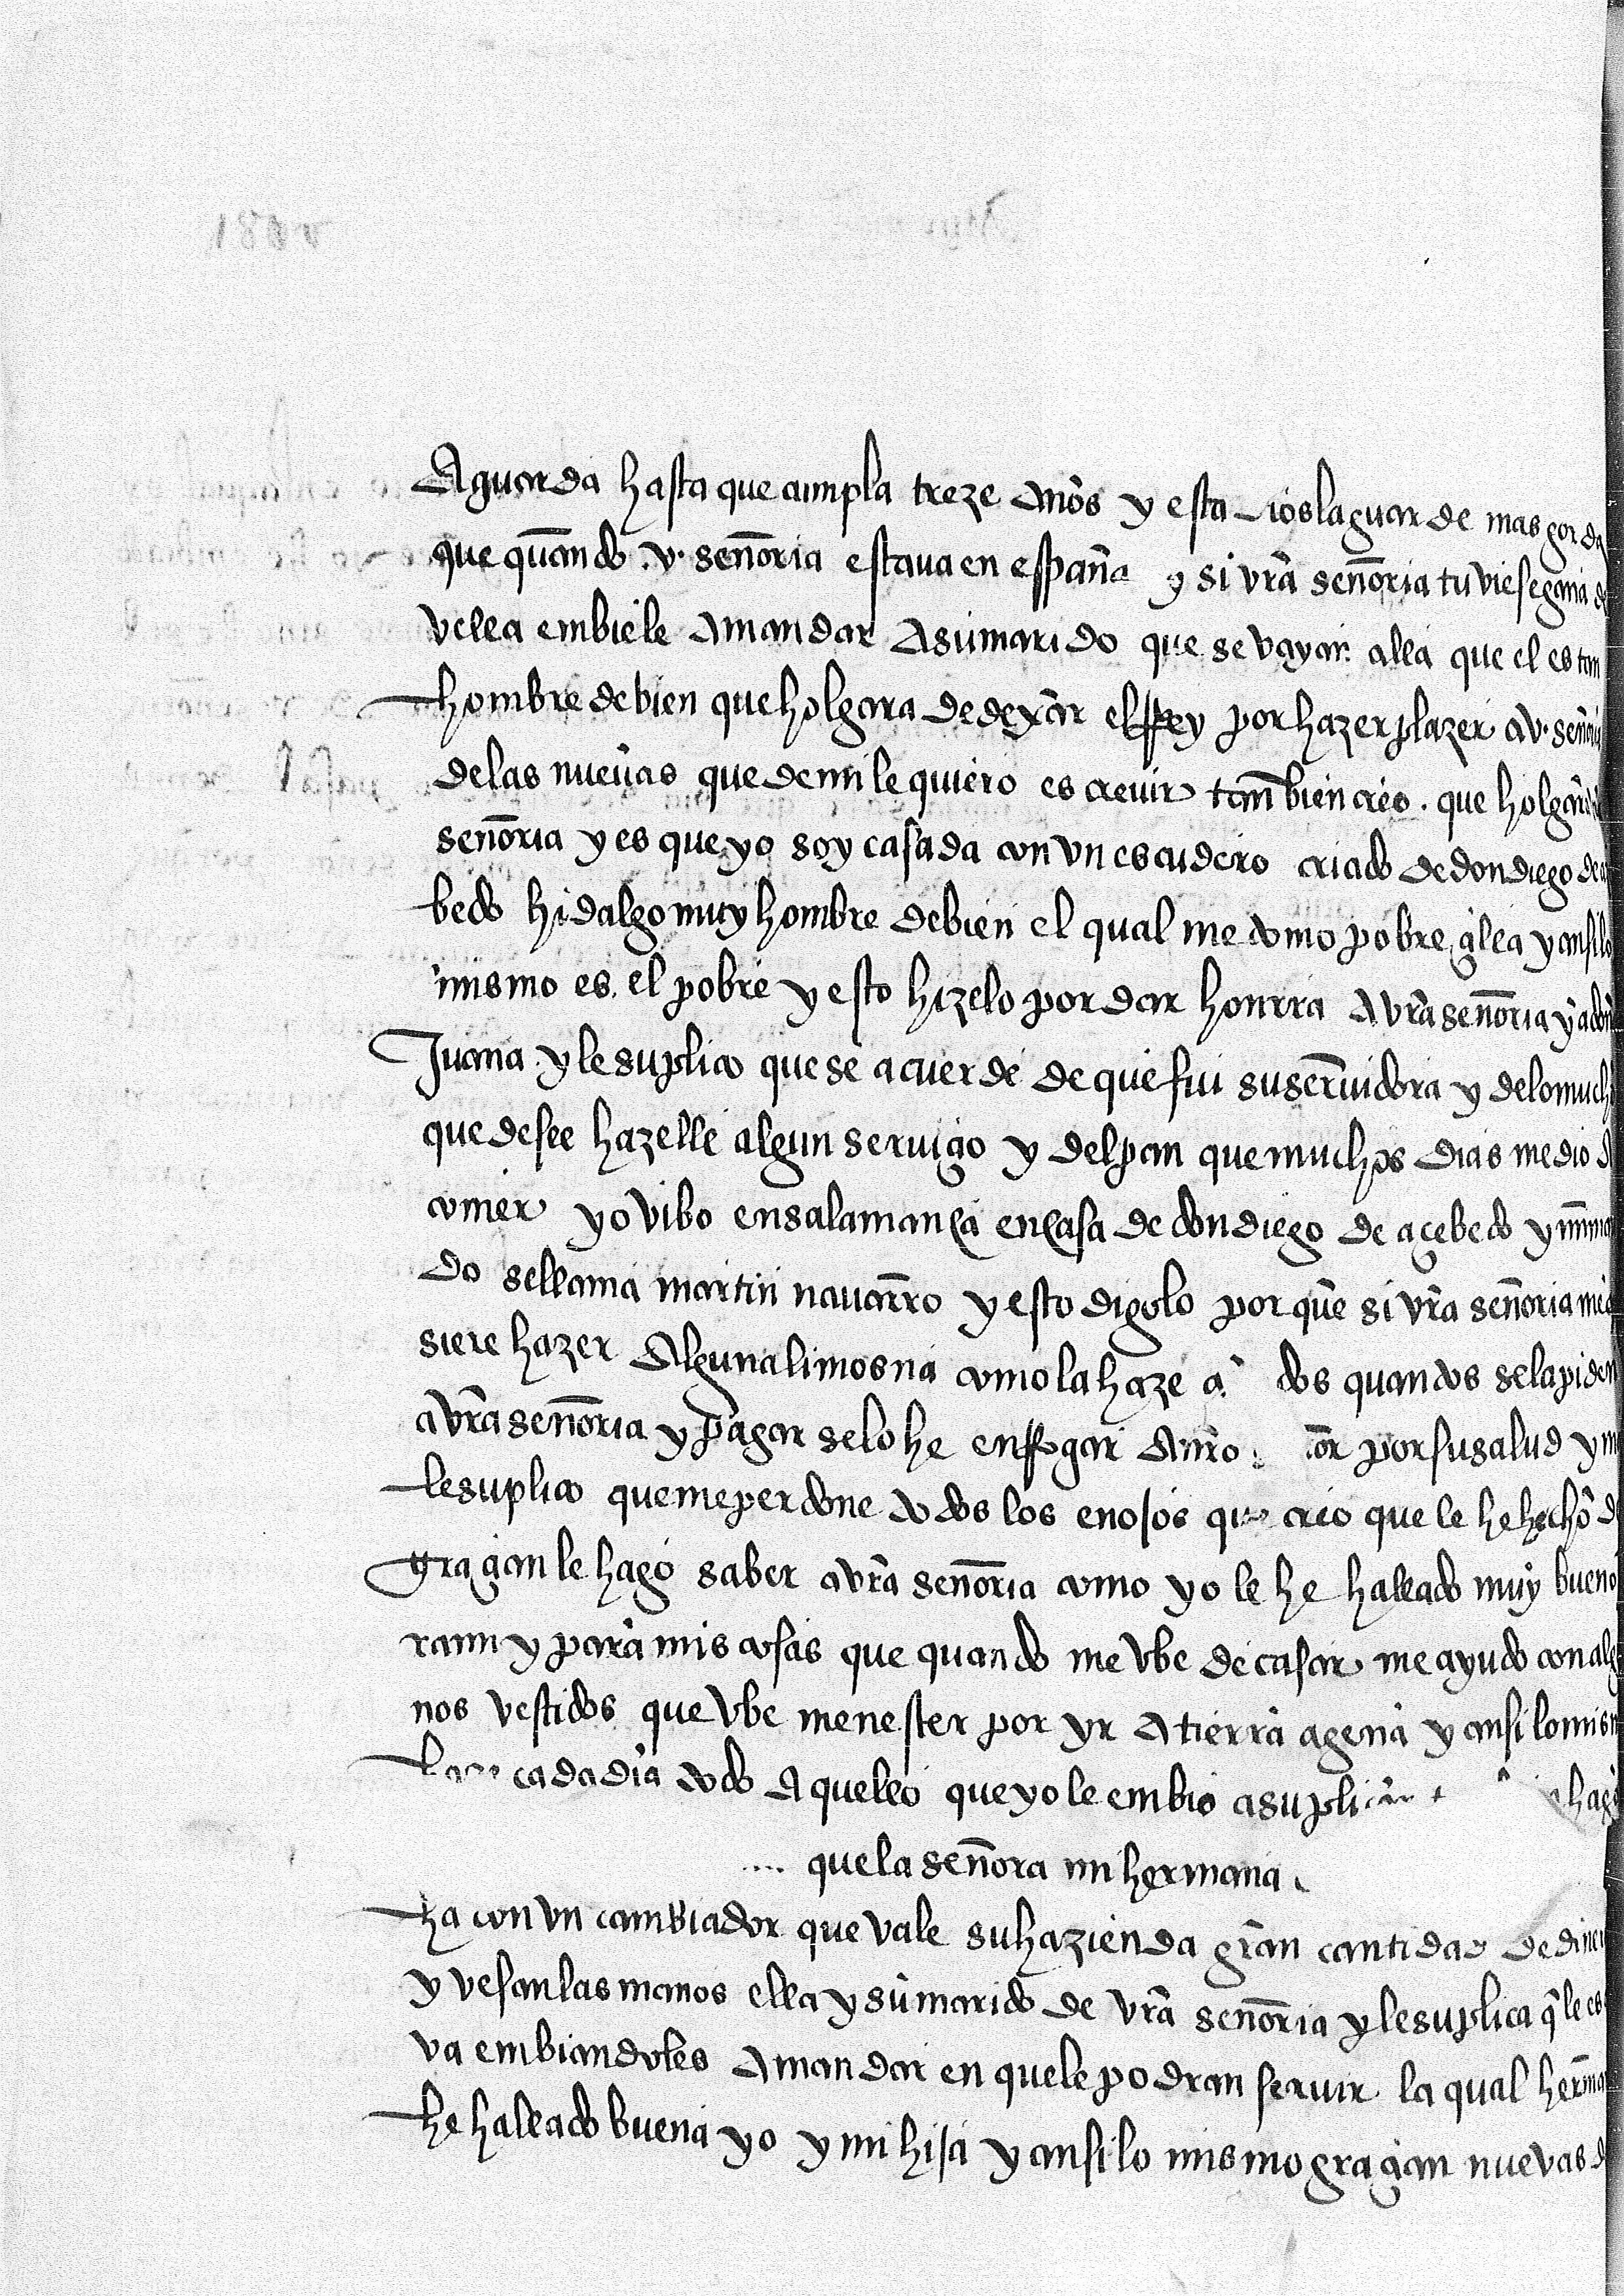 Aguarda hasta que cumpla treze años y esta dios la guarde mas gorda
que quando .v. señoria estaua en españa y si vrã señoria tuviese gana de
vella embiele a mandar a su marido que se vayan alla que el es tan
hombre de bien que holgara de dexar el rrey por hazer plazer a v. señoria
de las nueuas que de mi le quiero escreuir tambien creo . que holgara
señoria y es que yo soy casada con vn escudero criado de don diego de
bedo hidalgo muy hombre de bien el qual me tomo pobre y ansi lo
mismo es el pobre y esto hizelo por dar honrra a vrã señoria y a doña
Juana y le suplico que se acuerde de que fui su seruidora y de lo mucho
que desee hazelle algun seruiçio y del pan que muchos dias me dio
comer yo vibo en salamanca en casa de don diego de açebedo y mi mari
do se llama martin nauarro y esto digolo por que si vrã señoria me
siere hazer alguna limosna como la haze a dos quantos se la piden
a vrã señoria y pagar se lo he en rrogar a nrõ por su salud y
le suplico que me perdone todos los enojos que creo que le he hecho
graçian le hago saber a vrã señoria como yo le he hallado muy bueno
rami y para mis cosas que quando me vbe de casar me ayudo con alg
nos vestidos que vbe menester por yr a tierra agena y ansi lo mism
cada dia todo aquello que yo le embio a suplicar haga
que la señora mi hermana
ha con vn cambiador que vale su hazienda gran cantidad de dine
y vesan las manos ella y su marido de vrã señoria y le suplica q̃ le es
va embiandoles a mandar en que le podran seruir la qual herma
he hallado buena yo y mi hija y ansi lo mismo graçian nuevas d